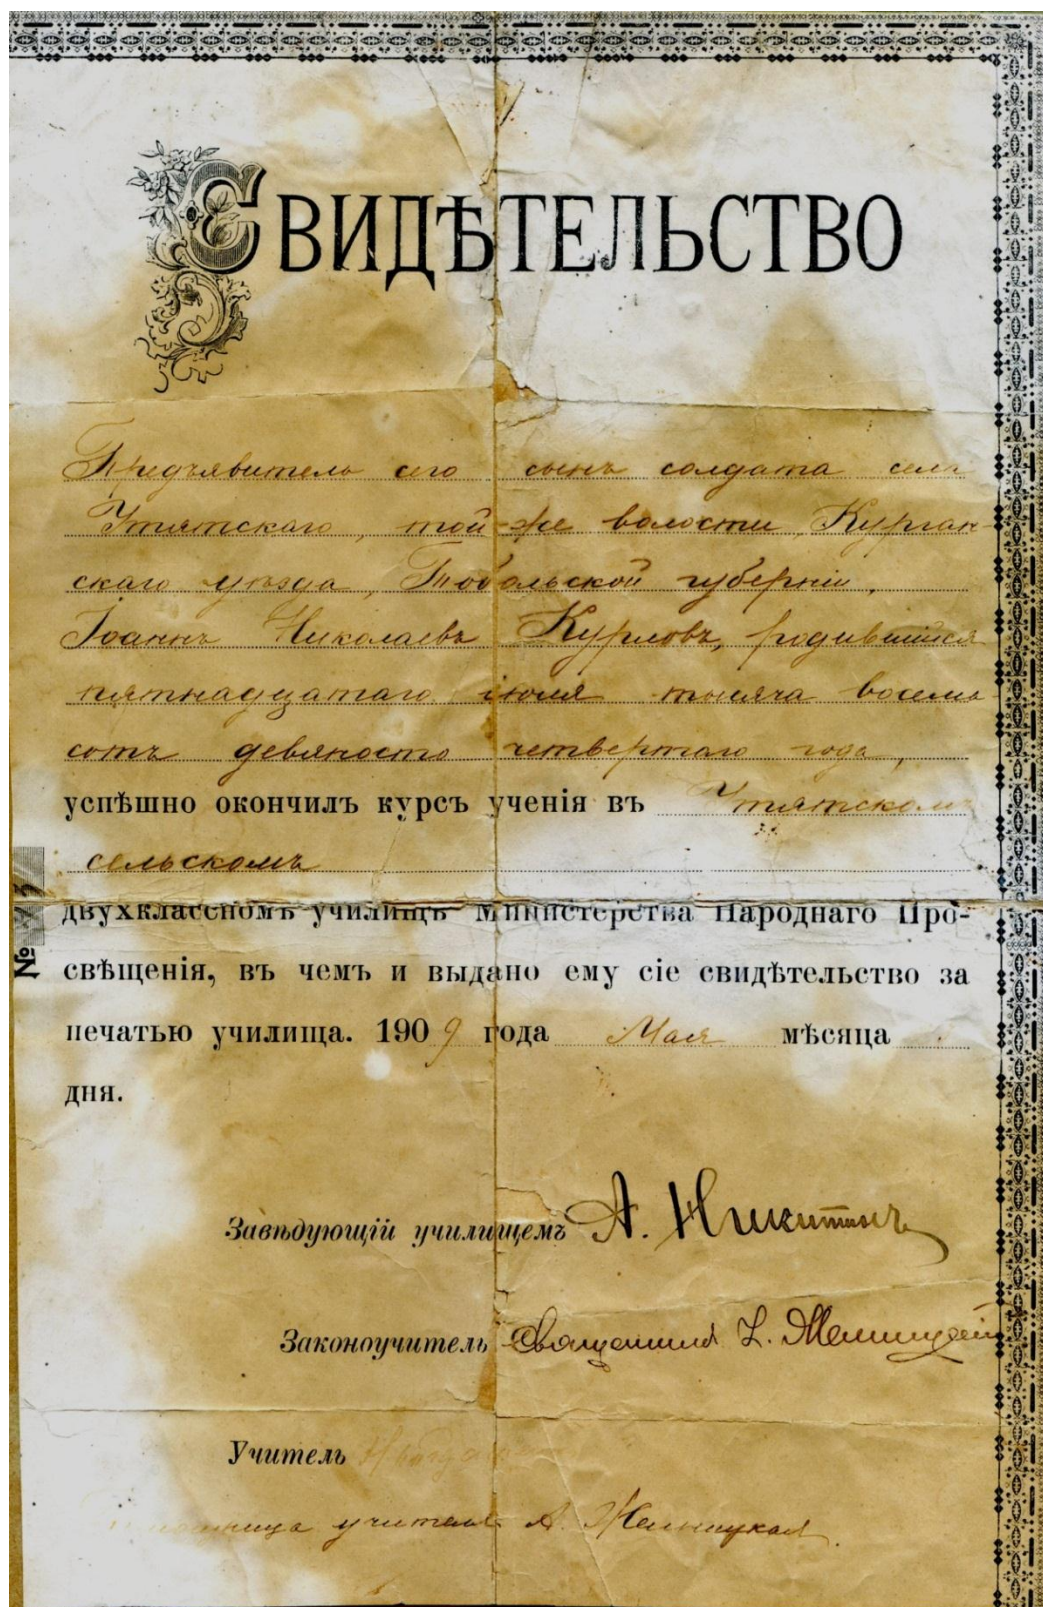 СВИДѢТЕЛЬСТВО
Предъявитель сего сынъ солдата села
Утятскаго, той-же волости, Курган-
скаго уѣзда, Тобольской губерніи,
Іоаннъ Николаевъ Курловъ, родившійся
пятнадцатаго іюля тысяча восемь
сотъ девяносто четвертаго года,
успѣшно окончилъ курсъ ученія въ Утятскомъ
сельскомъ
двухклассномъ училищѣ Министерства Народнаго Про-
свѣщенія, въ чемъ и выдано ему сіе свидѣтельство за
печатью училища. 1909 года Мая мѣсяца
дня.
№
Завѣдующій училищемъ А. Никитинъ
Законоучитель Священникъ
Учитель
учителя А.